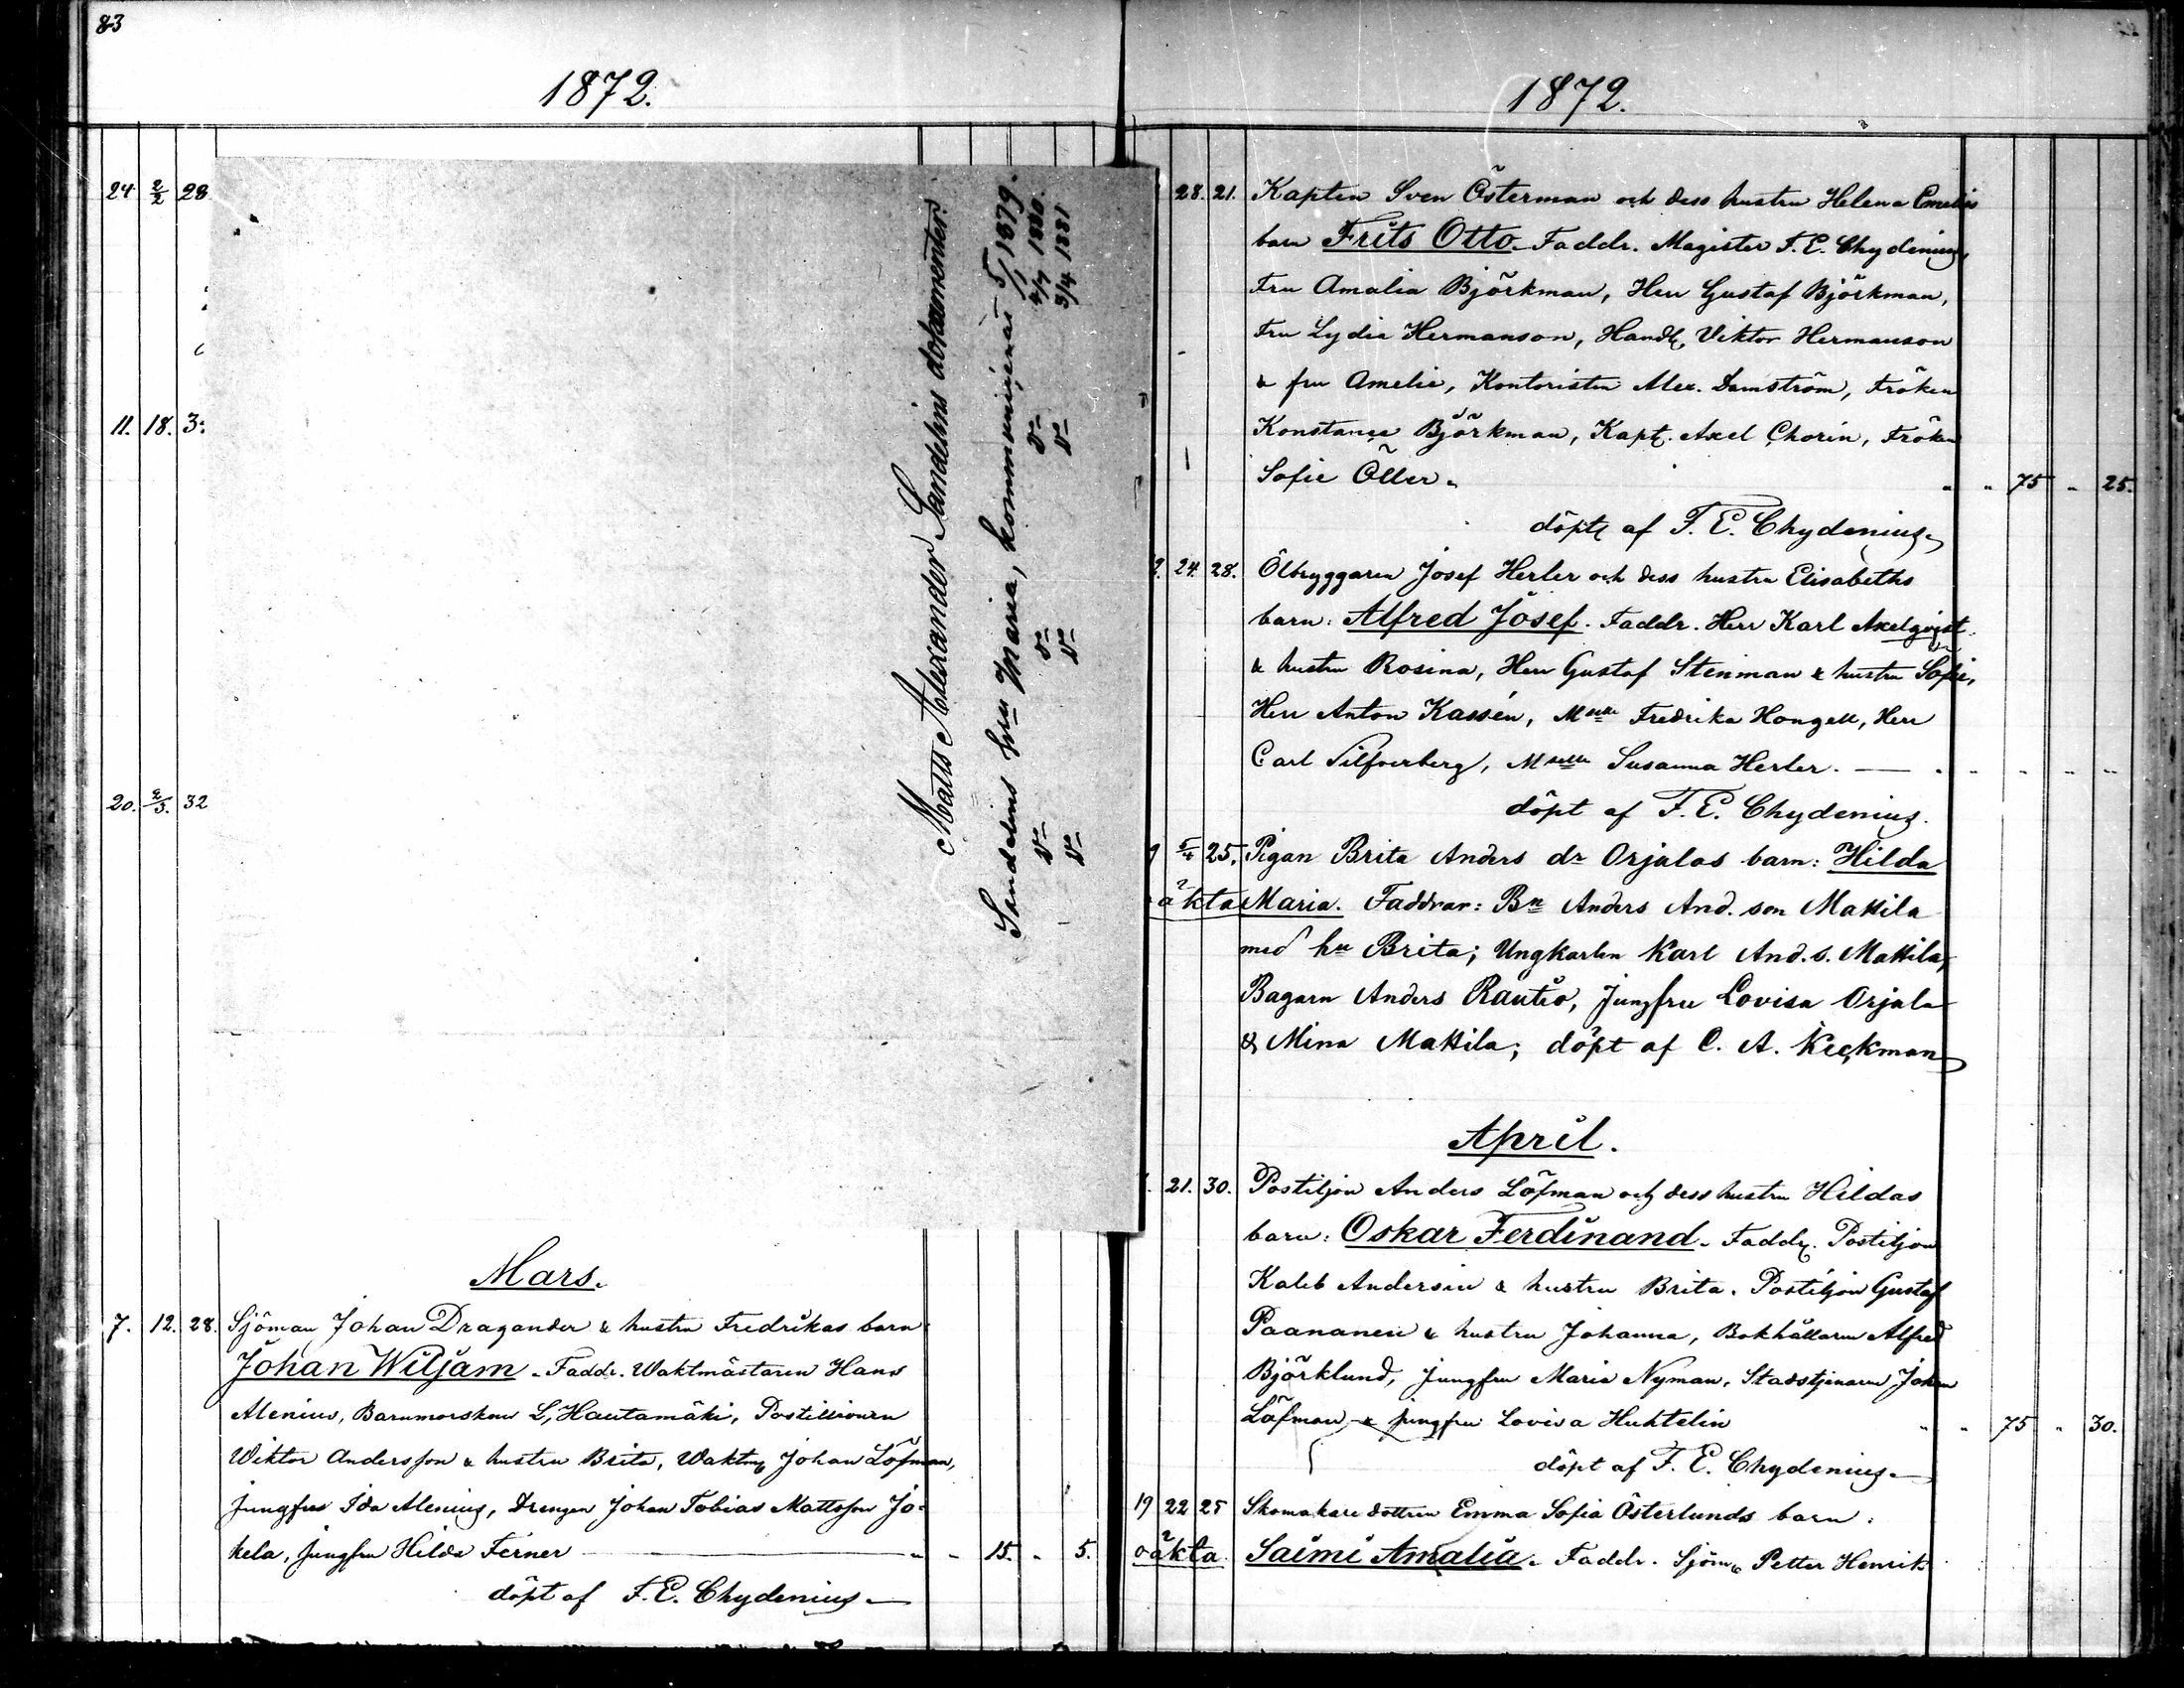 83
1872.
24 2/2 28
11. 18. 3
20. 2/3. 32
Matts Alexander Sandelins dokumenter
Sandelins hru Maria, kommunicerat 5/1 1879.
do do do 4/7 1880.
do do do 3/4 1881
Mars.
7. 12. 28. Sjöman Johan Dragander & hustru Fredrikas barn
Johan Wiljam. Faddr. Waktmästaren Hans
Alenius, Barnmorskan L. Hautamäki, Postillionen
Wiktor Andersson & hustru Brita, Waktm Johan Löfman,
jungfru Ida Alenius, Drengen Johan Tobias Mattsson Jo-
kela, jungfru Hilda Ferner " - 15. - 5.
döpt af F. E. Chydenius
1872.
28. 21. Kapten Sven Österman och dess hustru Helena Emelies
barn Frits Otto. Faddr. Magister F. E. Chydenius,
Fru Amalia Björkman, Herr Gustaf Björkman,
Fru Lydia Hermanson, Handl, Viktor Hermanson
& fru Amelie, Kontoristen Alex. Damström, Fröken
Konstance Björkman, Kapt. Axel Chorin, Fröken
Sofie Öller. " " 75 " 25.
döpt af F. E. Chydenius
24. 28. Ölbryggaren Josef Herler och dess hustru Elisabeths
barn: Alfred Josef. Faddr. Herr Karl Axelqvist
& hustru Rosina, Herr Gustaf Stenman & hustru Sofie,
Herr Anton Kassén, Mselle Fredrika Hongell, Herr
Carl Silfverberg, Mselle Susanna Herler.
döpt af F. E. Chydenius.
5/4 25. Pigan Brita Anders dr Orjalas barn: Hilda
oäkta Maria. Faddrar: Bn Anders And. son Mattila
med hu Brita; Ungkarlen Karl And. s. Mattila,
Bagarn Anders Rautio, Jungfru Lovisa Orjala
& Mina Mattila; döpt af C. A. Keckman
April.
21. 30. Postiljon Anders Löfman och dess hustru Hildas
barn: Oskar Ferdinand. Faddr. Postiljon
Kaleb Andersin & hustru Brita. Postiljon Gustaf
Paananen & hustru Johanna, Bokhållaren Alfred
Björklund, Jungfru Maria Nyman, Stadstjenaren Johan
Löfman & jungfru Lovisa Huhtelin " " 75 " 30.
döpt af F. E. Chydenius
19 22 25 Skomakare dottren Emma Sofia Österlunds barn:
oäkta. Saimi Amalia. Faddr. Sjöm. Petter Henrik